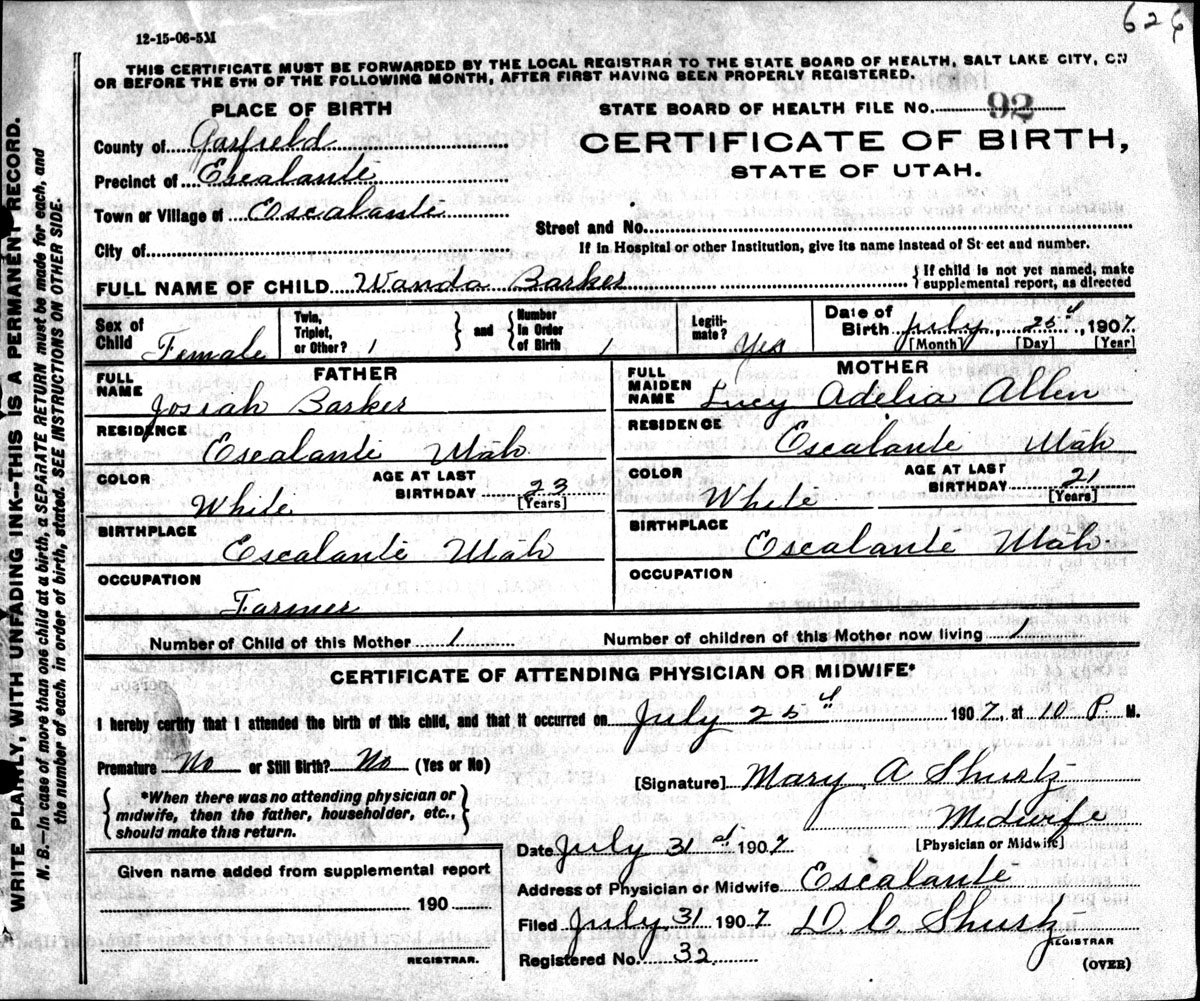 626
12-15-06-5M
THIS CERTIFICATE MUST BE FORWARDED BY THE LOCAL REGISTRAR TO THE STATE BOARD OF HEALTH, SALT LAKE CITY, ON
OR BEFORE THE 5TH OF THE FOLLOWING MONTH, AFTER FIRST HAVING BEEN PROPERLY REGISTERED.
PLACE OF BIRTH
County of Garfield
Precinct of Escalante
Town or Village of Escalante
City of
STATE BOARD OF HEALTH FILE NO. 92
CERTIFICATE OF BIRTH,
STATE OF UTAH.
Street and No.
If in Hospital or other Institution, give its name instead of Street and number.
FULL NAME OF CHILD Wanda Barker
{If child is not yet named, make
supplemental report, as directed
Sex of Child Female
Twin, Triplet, or Other? 1 } and { Number In Order of Birth 1
Legitimate? Yes
Date of Birth July, 25th, 1907
[Month] [Day] [Year]
FATHER
FULL NAME Josiah Barker
RESIDENCE Escalante Utah
COLOR White
AGE AT LAST BIRTHDAY 23 [Years]
BIRTHPLACE Escalante Utah
OCCUPATION Farmer
MOTHER
FULL MAIDEN NAME Lucy Adelia Allen
RESIDENCE Escalante Utah
COLOR White
AGE AT LAST BIRTHDAY 21 [Years]
BIRTHPLACE Escalante Utah
OCCUPATION
Number of Child of this Mother 1
Number of children of this Mother now living 1
CERTIFICATE OF ATTENDING PHYSICIAN OR MIDWIFE*
I hereby certify that I attended the birth of this child, and that it occurred on July 25th 1907, at 10 P. M.
Premature No or Still Birth? No (Yes or No)
{*When there was no attending physician or
midwife, then the father, householder, etc.,
should make this return.}
[Signature] Mary A Shurtz
Midwife
[Physician or Midwife]
Date July 31st 1907
Address of Physician or Midwife Escalante
Filed July 31 1907 D. C. Shurtz
REGISTRAR
Registered No. 32
(OVER)
Given name added from supplemental report
190
REGISTRAR.
WRITE PLAINLY, WITH UNFADING INK—THIS IS A PERMANENT RECORD.
N. B.—In case of more than one child at a birth, a SEPARATE RETURN must be made for each, and
the number of each, in order of birth, stated. SEE INSTRUCTIONS ON OTHER SIDE.